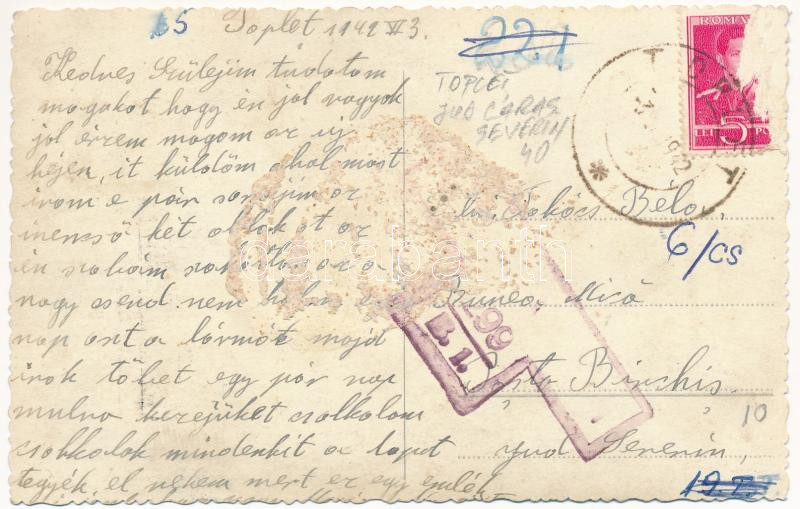 65 Toplet 1942 VI 3.
22.1
Kedves Szülejim tudatom
magokot hogy én jól vagyok
jól érzem magom az uj
hejen, it küldöm ahol most
irom e pár sorajim az
inencső két ablokot az
én szobám
nagy csend nem
nap ast a lármát majd
irok töbet egy pár nap
mulva kezejüket csolkolom
csokkolok mindenkit a lapot
tegyék el nekem mert ez egy emlék
TOPLEŢ
JUD CARAS
SEVERIN
40
ROMA
LEI 5 P.S.
Takács Bela
6/CS
Bunea Mică
B. 1.
Binchis
10
jud Severin,
19.7.
darabanth